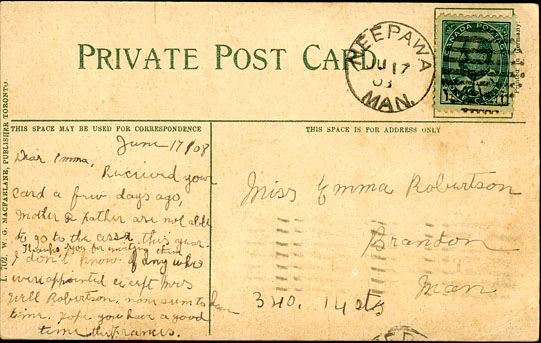 PRIVATE POST CARD
NEEPAWA
JU 17
08
MAN.
CANADA POSTAGE
THIS SPACE MAY BE USED FOR CORRESPONDENCE
THIS SPACE IS FOR ADDRESS ONLY
L. 702. W. G. MACFARLANE, PUBLISHER TORONTO
Germany.
June 17/08
Dear Emma,
Received your
card a few days ago,
Mother & Father are not able
to go to the assn this year
Thanks you for inviting them
I don't know if any who
were appointed except Mrs
Robertson, none seem to have
time. Hope you have a good
time tho Francis.
Miss Emma Robertson
Brandon
Man
340. 14